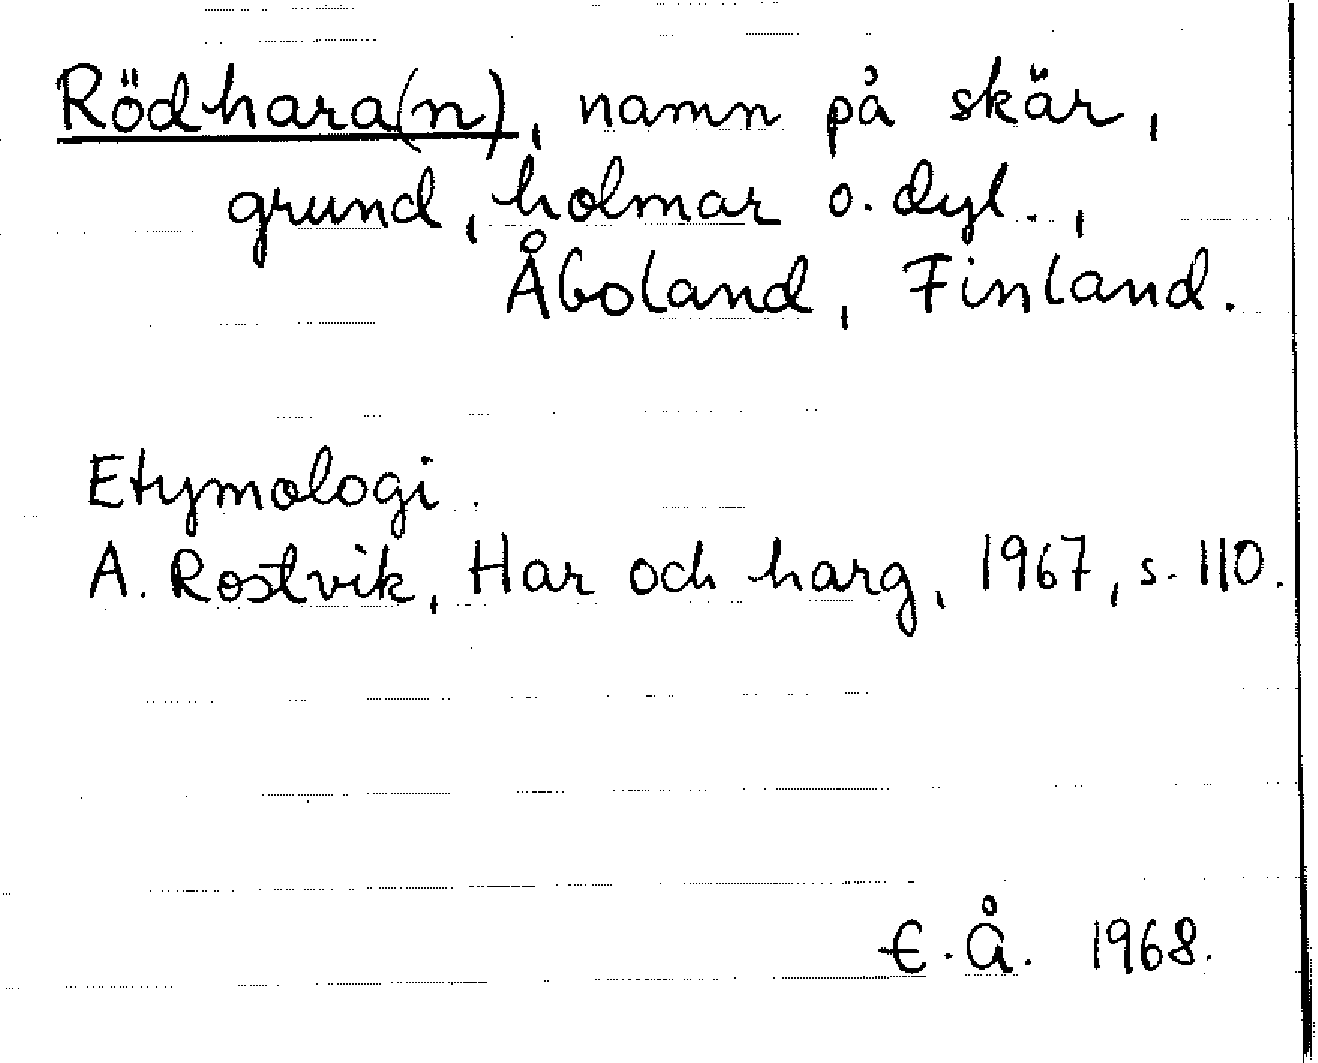 Rödhara(n), namn på skär,
grund, holmar o. dyl.,
Åboland, Finland.
Etymologi.
A. Rostvik, Har och harg, 1967, s. 110.
E. Å. 1968.